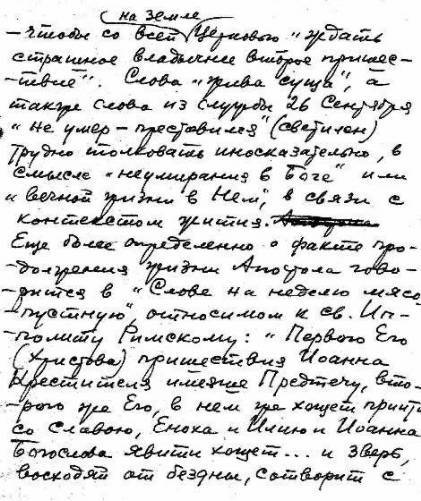 на земле
– чтобы со всей Церковью "ждать
страшное владычнее второе пришес-
-твие". Слова "жива суща", а
также слова из службы 26 Сентября
"не умер – преставился" (светилен)
трудно толковать иносказательно, в
смысле "неумирания в Боге" или
"вечной жизни в Нем", в связи с
контекстом жития.
Еще более определенно о факте про-
-должения жизни Апостола гово-
-рится в "Слове на неделю мясо
-пустную", относимом к св. Ип-
-политу Римскому: "Первого Его
(Христова) пришествия Иоанна
Крестителя имеяше Предтечу, вто-
-рого же Его, в нем же хощет прийти
со славою, Еноха и Илию и Иоанна
Богослова явити хощет... и зверь,
восходят от бездны, сотворит с